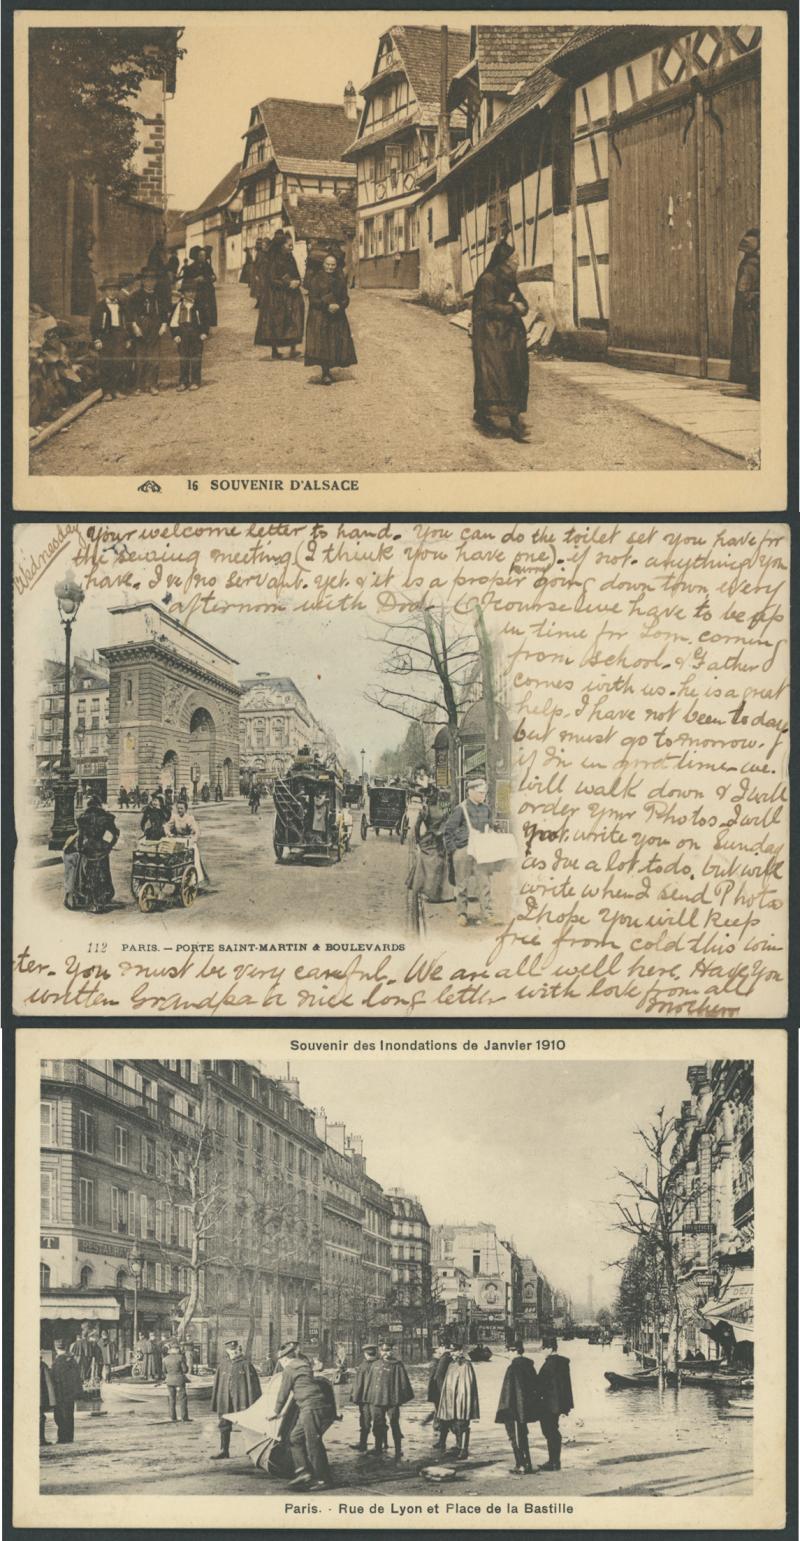 16 SOUVENIR D'ALSACE
Wednesday
Your welcome letter to hand. You can do the toilet set you have for
the sewing meeting (I think you have one). if not. anything you
have. I've no servant. yet. & it is a proper hurry going down town every
afternoon with Dod. Of course we have to be up
in time for Tom. coming
from school. & Father
comes with us. he is a great
help. I have not been to day
but must go to morrow. &
if I'm in good time. we.
will walk down & I will
order your Photos. I will
not write you on Sunday
as I've a lot to do. but will
write when I send Photos
I hope you will keep
free from cold this win
ter. You must be very careful. We are all well here. Have you
written Grandpa a nice long letter with love from all
Mother
112 PARIS. — PORTE SAINT-MARTIN & BOULEVARDS
Souvenir des Inondations de Janvier 1910
RESTAURANT
Paris. - Rue de Lyon et Place de la Bastille